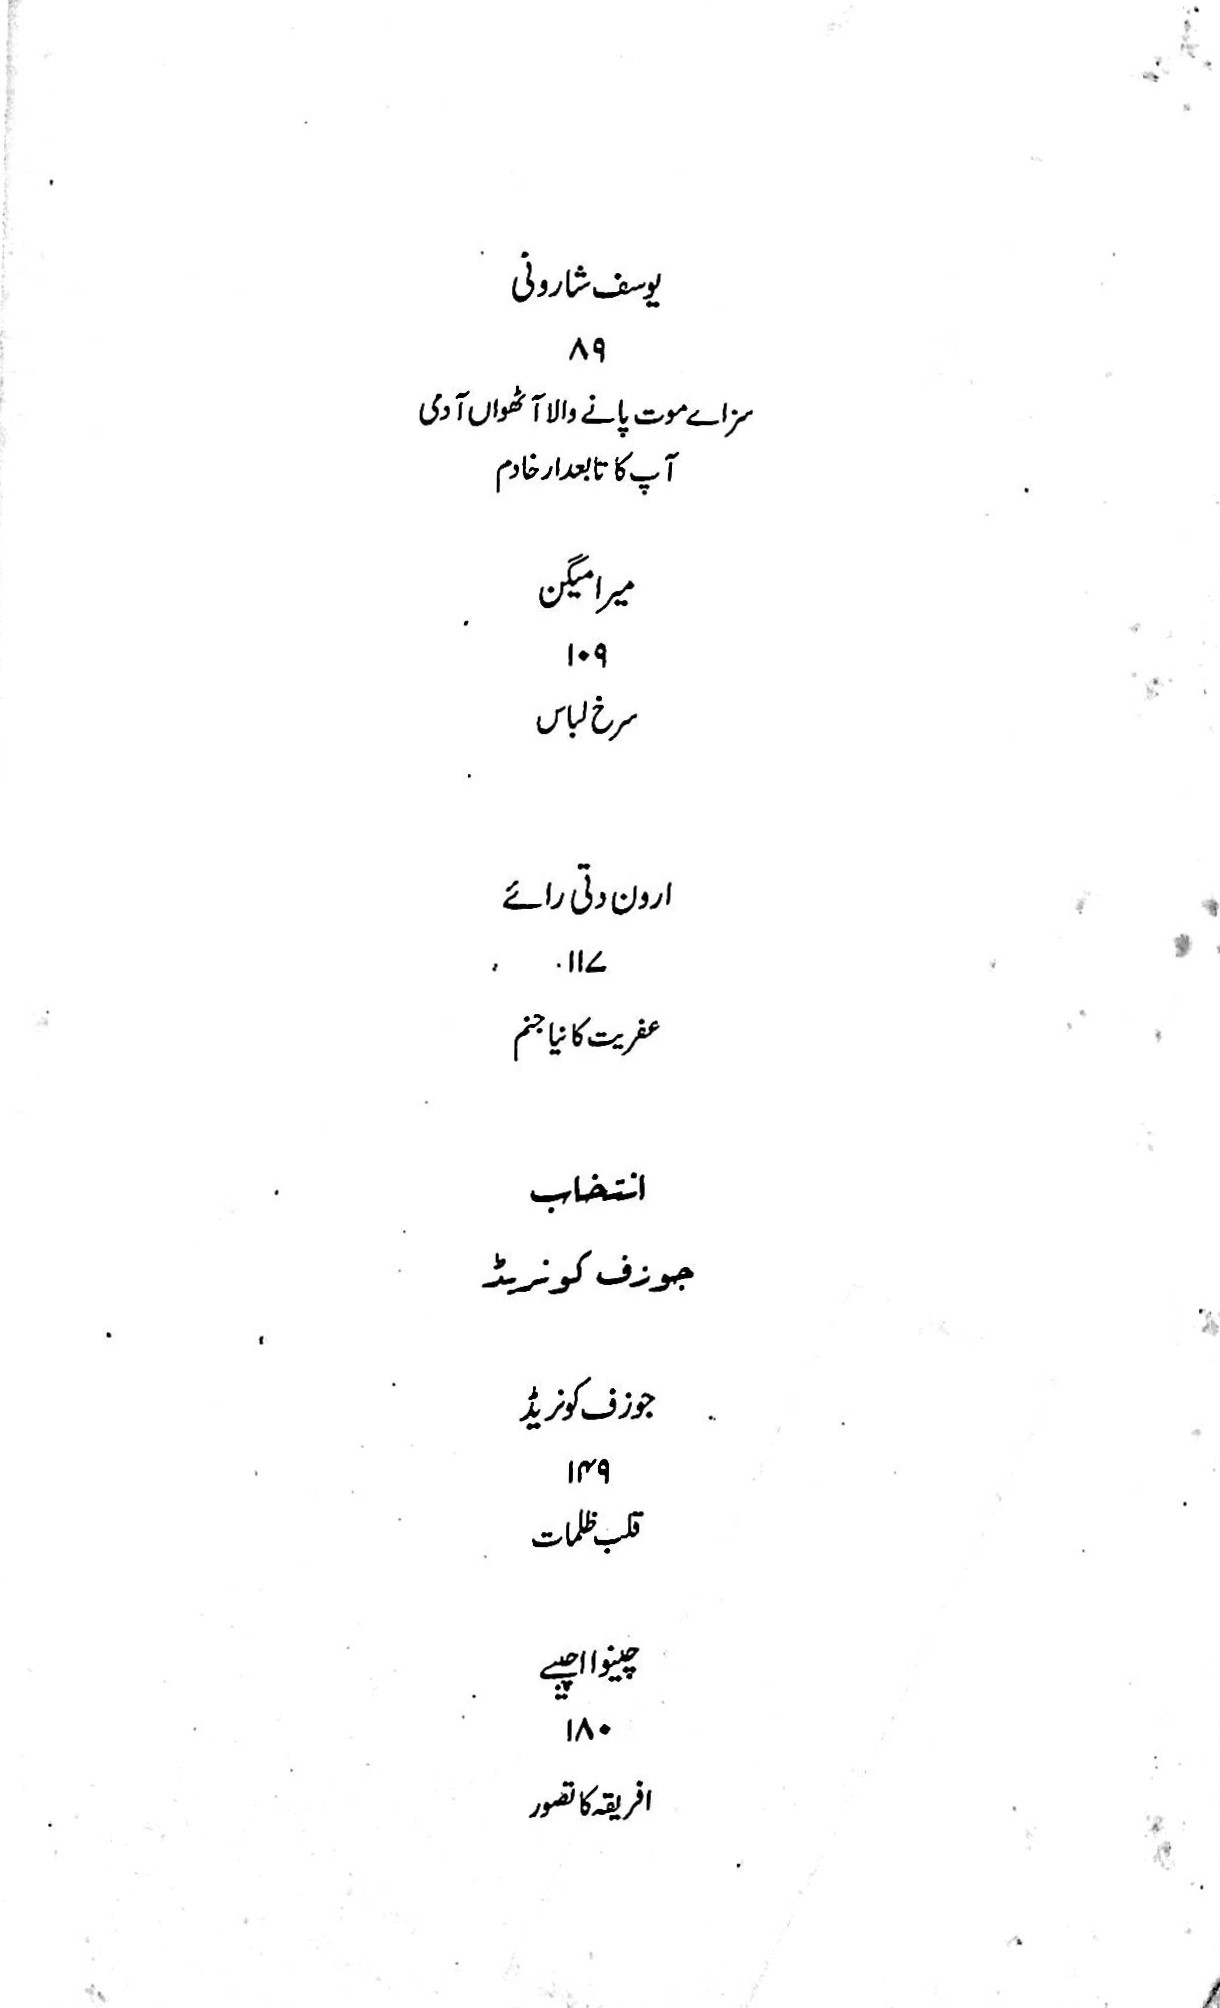 یوسف شارونی
۸۹
سزاے موت پانے والا آٹھواں آدمی
آپ کا تابعدار خادم
میرا میگن
۱۰۹
سرخ لباس
ارون دتی رائے
۱۱۷
عفریت کا نیا جنم
انتخاب
جوزف کونریڈ
جوزف کونریڈ
۱۴۹
قلب ظلمات
چینوا اچیبے
۱۸۰
افریقہ کا تصور